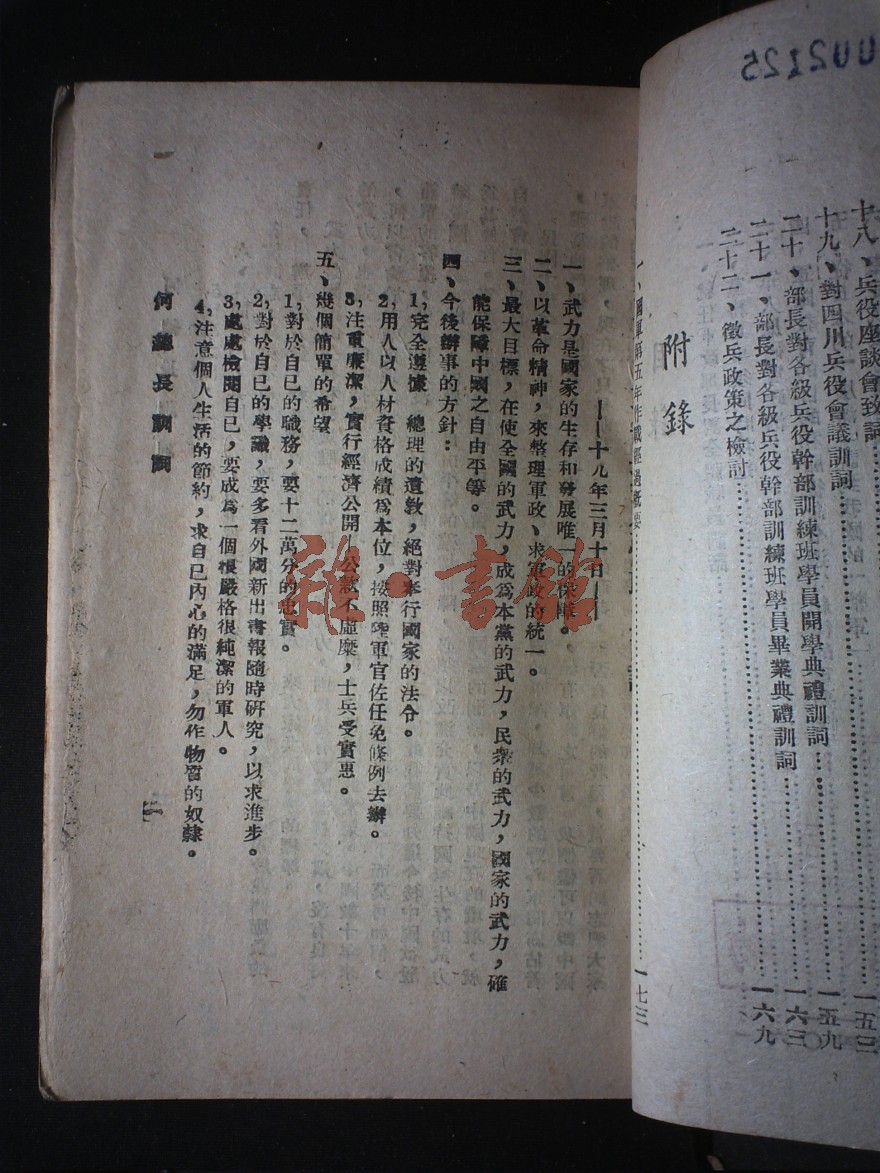 002125
十八、兵役座談會致詞……一五三
十九、對四川兵役會議訓詞……一五九
二十、部長對各級兵役幹部訓練班學員開學典禮訓詞……一六三
二十一、部長對各級兵役幹部訓練班學員畢業典禮訓詞……一六九
二十二、徵兵政策之檢討……
附錄
一、國軍第五年作戰經過概要……一七三
——十九年三月十日——
一、武力是國家的生存和發展唯一的保障。
二、以革命精神，來整理軍政、求軍政的統一。
三、最大目標，在使全國的武力，成爲本黨的武力，民衆的武力，國家的武力，確
能保障中國之自由平等。
四、今後辦事的方針：
1,完全遵據　總理的遺教，絕對奉行國家的法令。
2,用人以人材資格成績爲本位，按照陸軍官佐任免條例去辦。
3,注重廉潔，實行經濟公開—公款不虛糜，士兵受實惠。
五、幾個簡單的希望
1,對於自己的職務，要十二萬分的忠實。
2,對於自己的學識，要多看外國新出書報隨時研究，以求進步。
3,處處檢閱自己，要成爲一個樸嚴格很純潔的軍人。
4,注意個人生活的節約，求自己內心的滿足，勿作物質的奴隸。
何總長訓詞
一
雜·書館